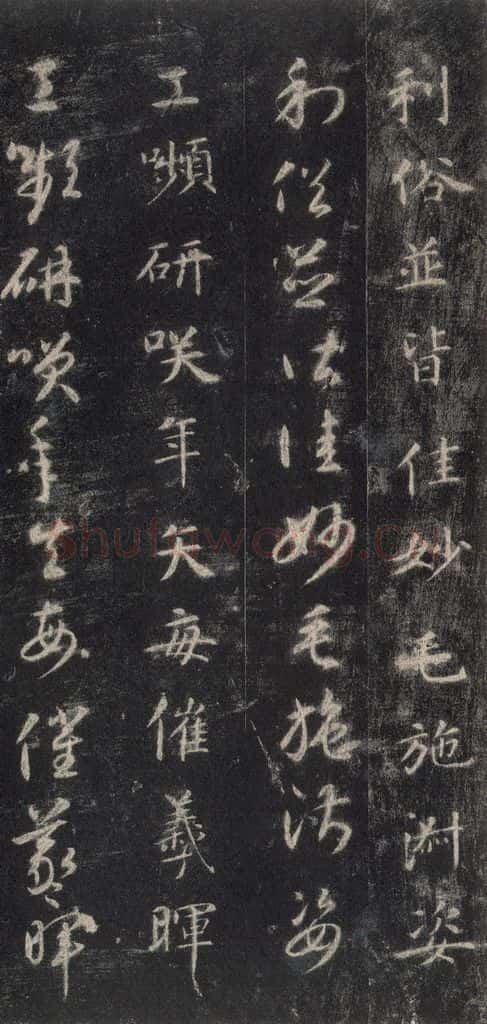 利俗並皆佳妙毛施淑姿
利俗並皆佳妙毛施淑姿
工嚬研咲年矢每催羲暉
工嚬研咲年矢每催羲暉
Shufawang.cn